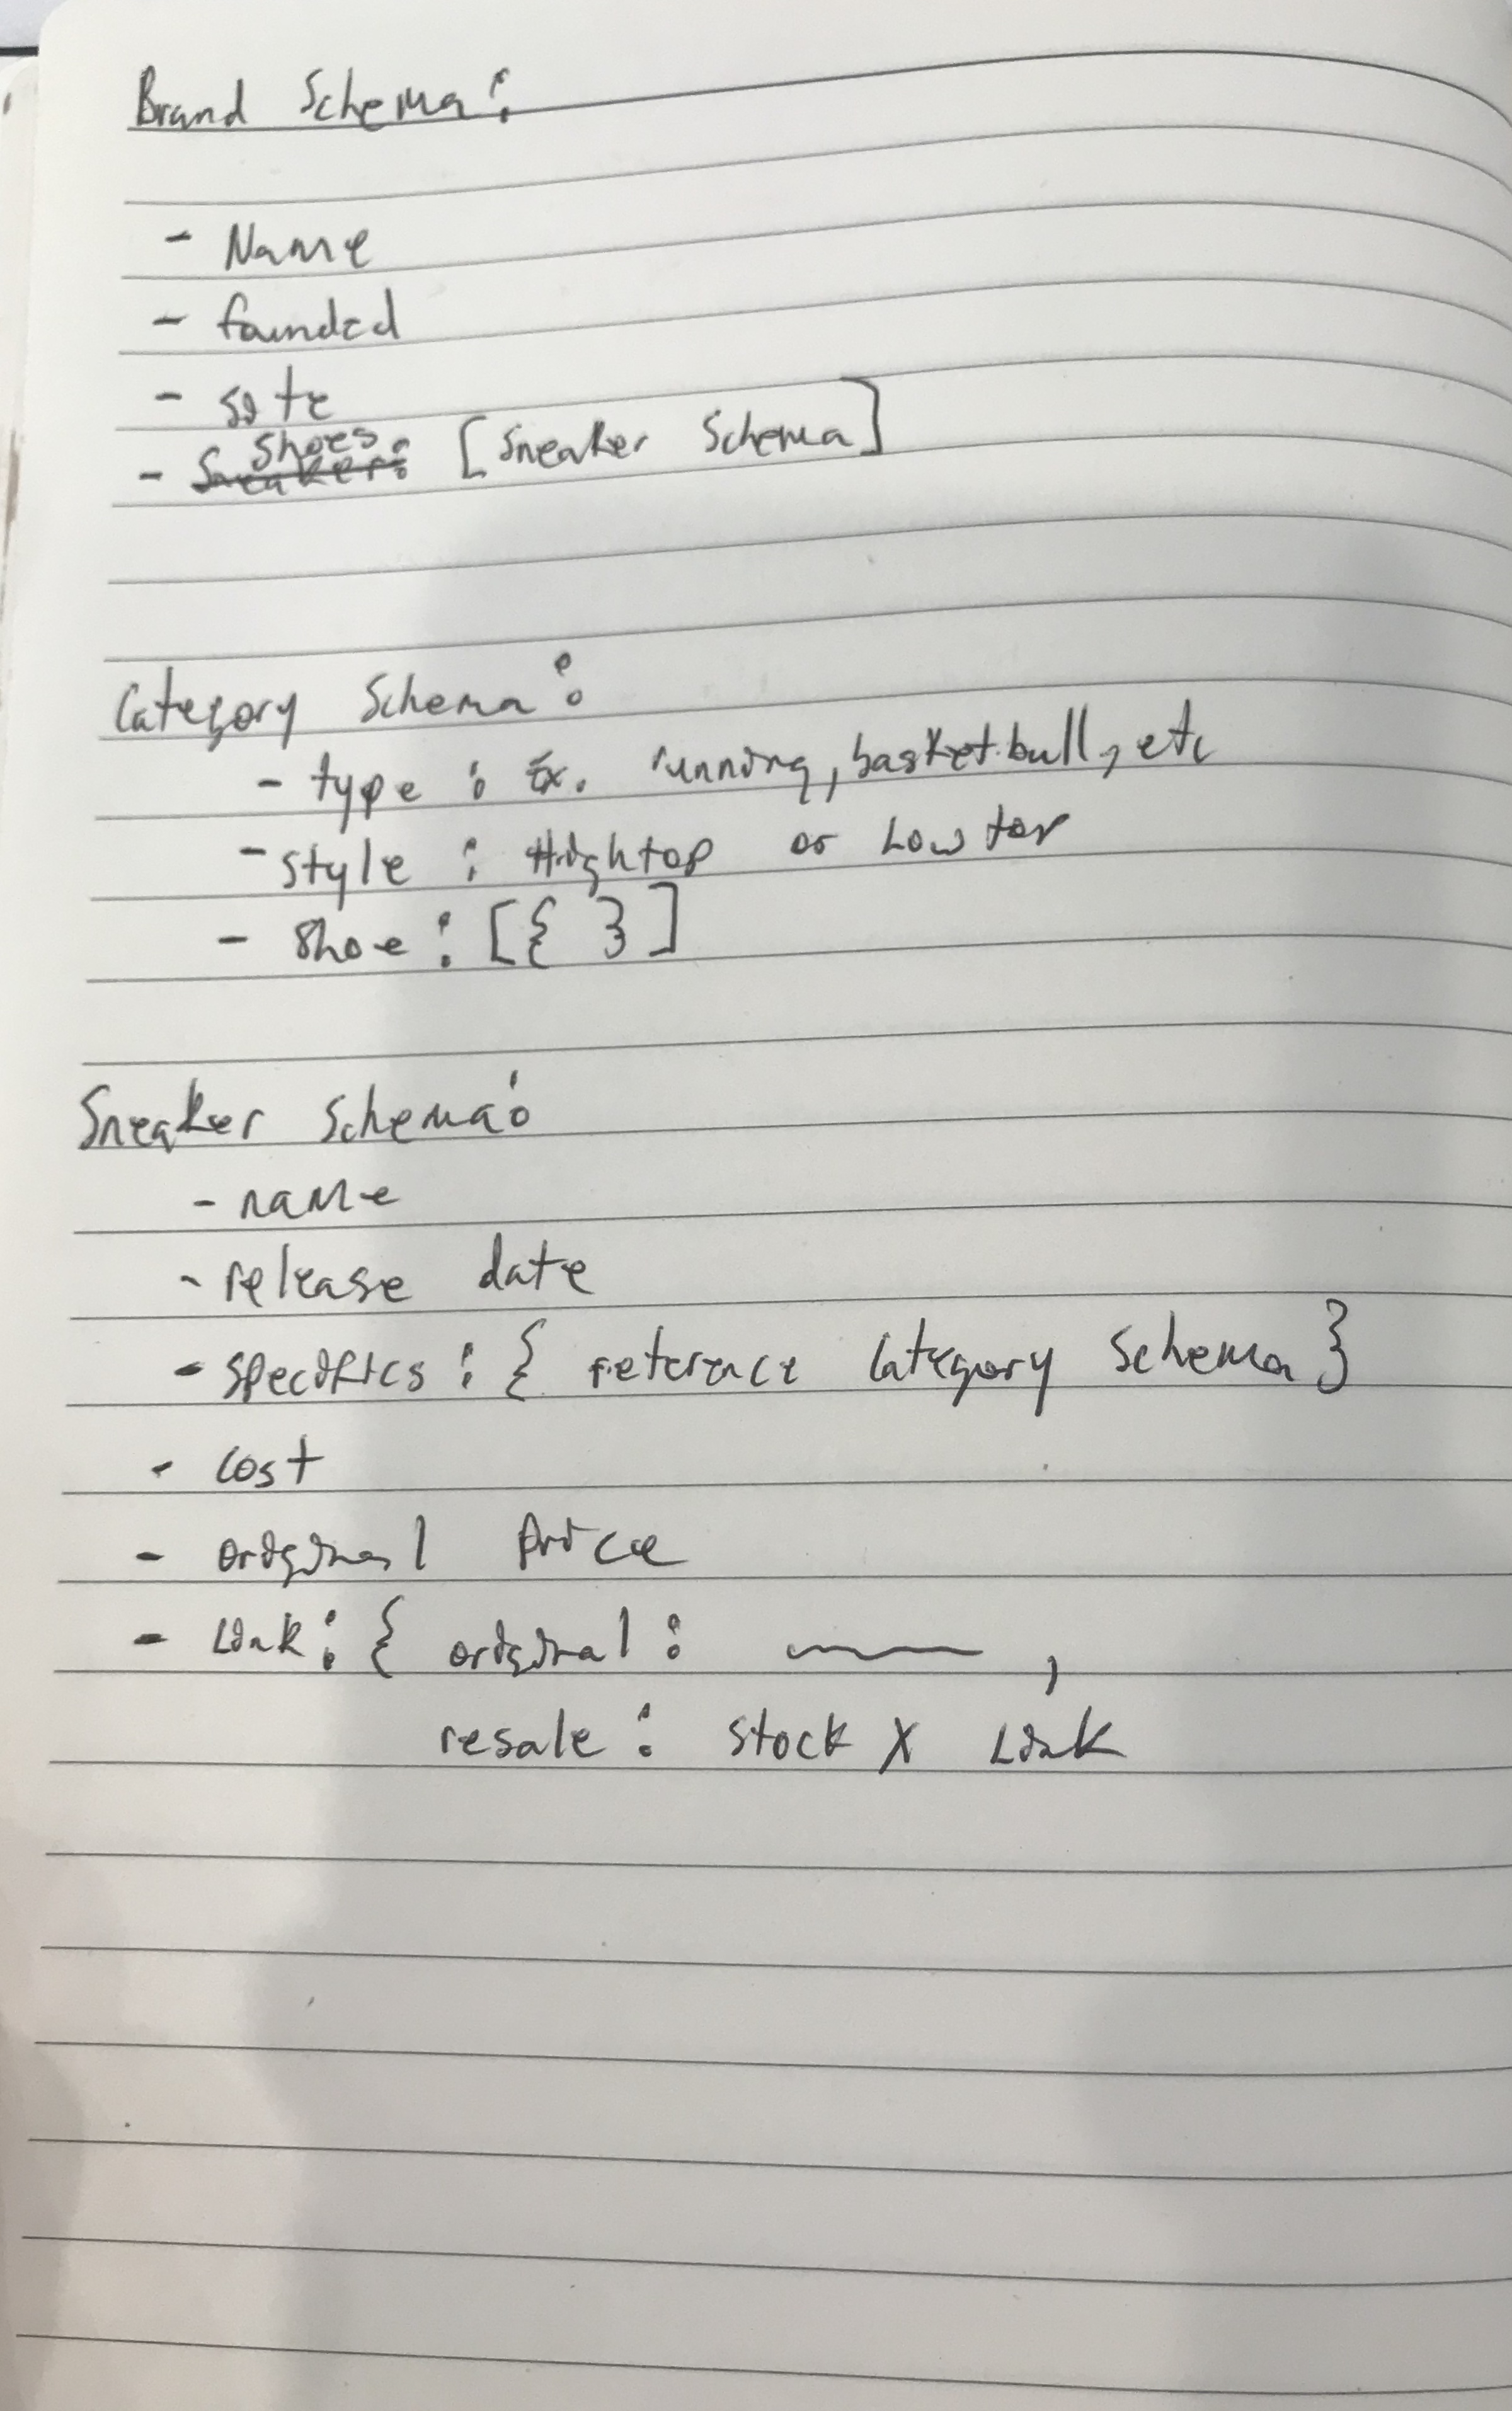 Brand Schema:
- Name
- founded
- site
- Sneaker: shoes: [Sneaker Schema]
Category Schema:
- type : Ex. running, basketball, etc
- style : Hightop or Low top
- Shoe : [{ }]
Sneaker Schema:
- name
- release date
- specifics : { reference Category Schema }
- cost
- original price
- Link : { original : ,
resale : stock X Link